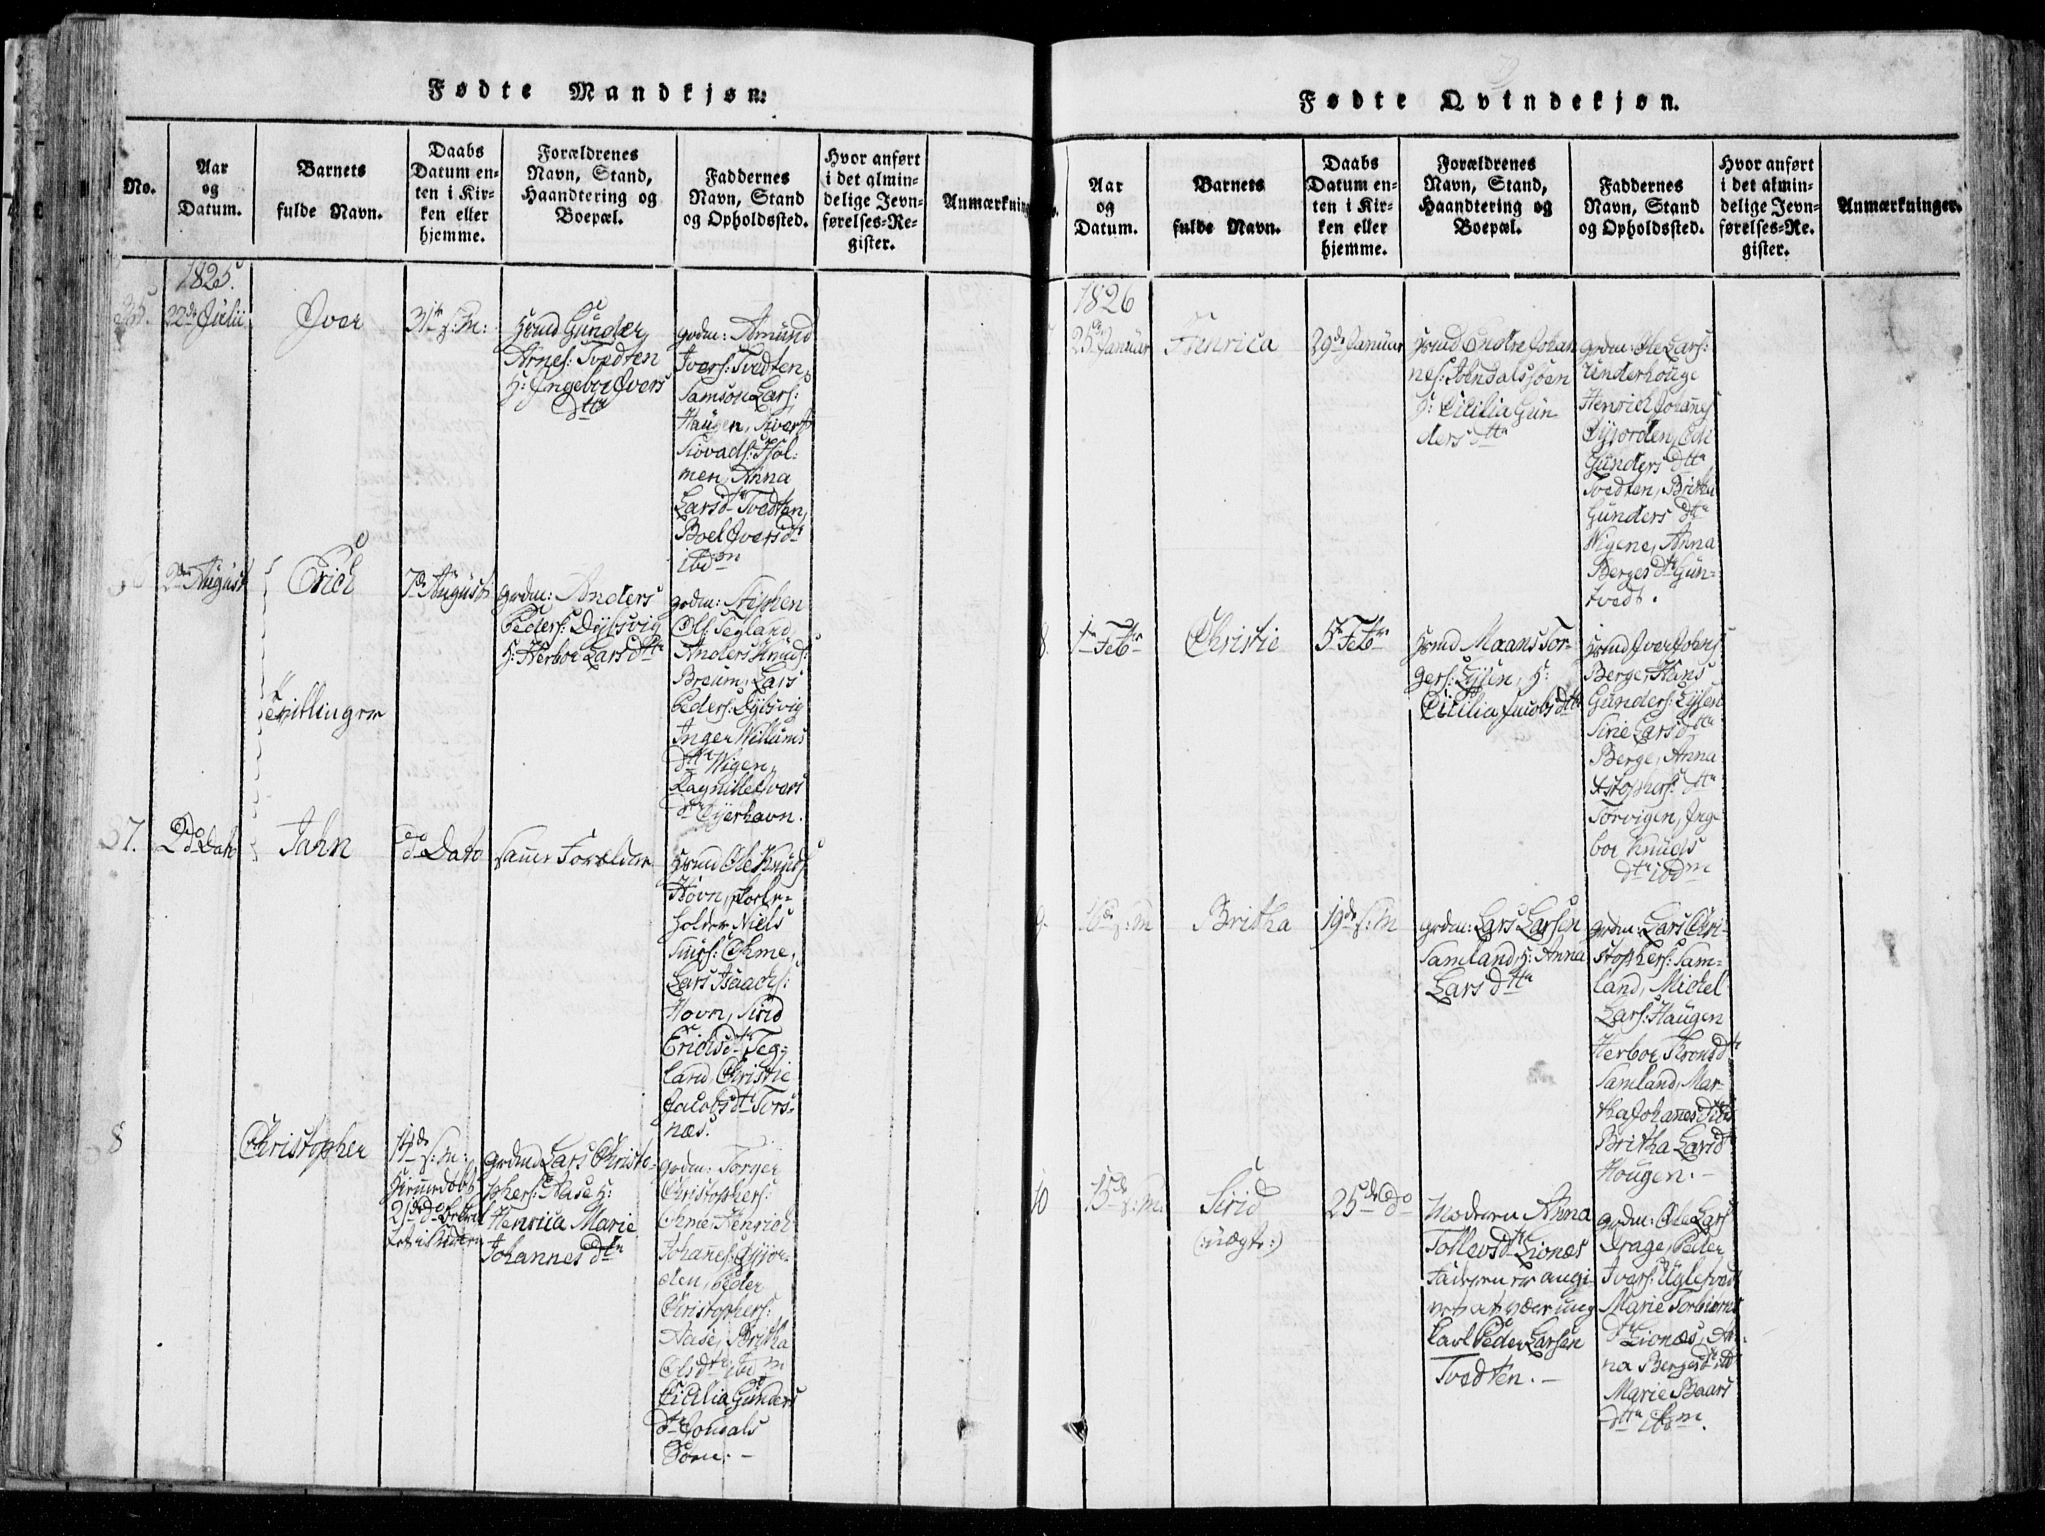 Fødte Mandkjøn:
No.
Aar
og
Datum.
Barnets
fulde Navn.
Daabs
Datum en-
ten i Kir-
ken eller
hjemme.
Forældrenes
Navn, Stand,
Haandtering og
Boepæl.
Faddernes
Navn, Stand
og Opholdssted.
Hvor anført
i det almin-
delige Jevn-
førelses-Re-
gister.
Anmærkning
1825.
22de Julii
Iver
31te s: M:
Hmd Gunder
Arnes: Tvedten
H: Ingebor Ivers
dtr
grdm: Amund
Ivers: Tvedten,
Samson Lars:
Haugen, Siver
Siovads: Hol-
men, Anna
Larsdtr Tvedten,
Boel Iversdtr
ibdm
2den August
Erich
Tvillinger
7de August
grdm: Anders
Peders: Dybsvig
H: Herboe Lars dttr
grdm: Stephen
Ols: Tegland,
Anders Knuds:
Breum, Lars
Peders: Dybsvig
Inger Willums
dttr Wigen,
Ragnilde Ivers
dtr Øyerhavn.
37.
2de Dato
Jahn
do Dato
samme Forældre
Hmd Ole Knuds
Hovn,
holder Niels
Siurs: Ohme,
Lars Isaachs:
Hovn, Sirid
Erichsdtr Teg-
land, Christie
Jacobsdtr Tors-
næs.
8
Christopher
14de s: M:
hjemmedøbt
21de do
grdmd Lars Christo-
phers: Aase H:
Henrica Marie
Johannes dtr
grdm: Torger
Christophers:
Ohme, Henrich
Johanes:
den, Peder
Christophers:
Aase, Britha
Olsdtr ibdm
Cicilia Gunders
dtr
Søen. –
Fødte Qvindekjøn.
Aar
og
Datum.
Barnets
fulde Navn.
Daabs
Datum en-
ten i Kir-
ken eller
hjemme.
Forældrenes
Navn, Stand,
Haandtering og
Boepæl.
Faddernes
Navn, Stand
og Opholdssted.
Hvor anført
i det almin-
delige Jevn-
førelses-Re-
gister.
Anmærkninger.
1826
25de Januar
Henrica
29de Januar
Hmd Endre Johan
nes:
H: Cicilia Gun
ders dttr
grdm: Ole Lars:
Underhouge
Henrich Johanes
Gunders dttr
Tvedten, Britha
Gunders dtr
Wigene, Anna
Berges dtr Gun-
tvedt.
8.
1te Febr
Christie
5te Febr
Hmd Maans Tor-
gers: H:
Cicilia Jacobs dtr
Hmd Iver Johns:
Berge, Hans
Gunders:
Sirie Lars dttr
Berge, Anna
Xstophers: dttr
Torvigen, Inge
boe Knuds
dtr ibdm
9.
Britha
19de s: M
grdm: Lars Larsen
Samland, H: Anna
Lars dttr
grdm: Lars Chri-
stophers: Sam-
land, Michel
Lars: Haugen
Herboe Tronsdtr
Samland, Mar-
tha Johanesdtr
Britha Larsdtr
Hougen. –
10
15de s: M:
Sirid
(uægte:)
25de do
Moderen Anna
Tollevsdtr Lionæs
Faderen er angi-
vet at være ung
Karl Peder Larsen
Tvedten. –
grdm: Ole Lars
Drage, Peder
Ivers:
Marie Torbiørns
dtr Lionæs, An-
na Bergesdtr ibd
Marie Baars
dttr ibdm.